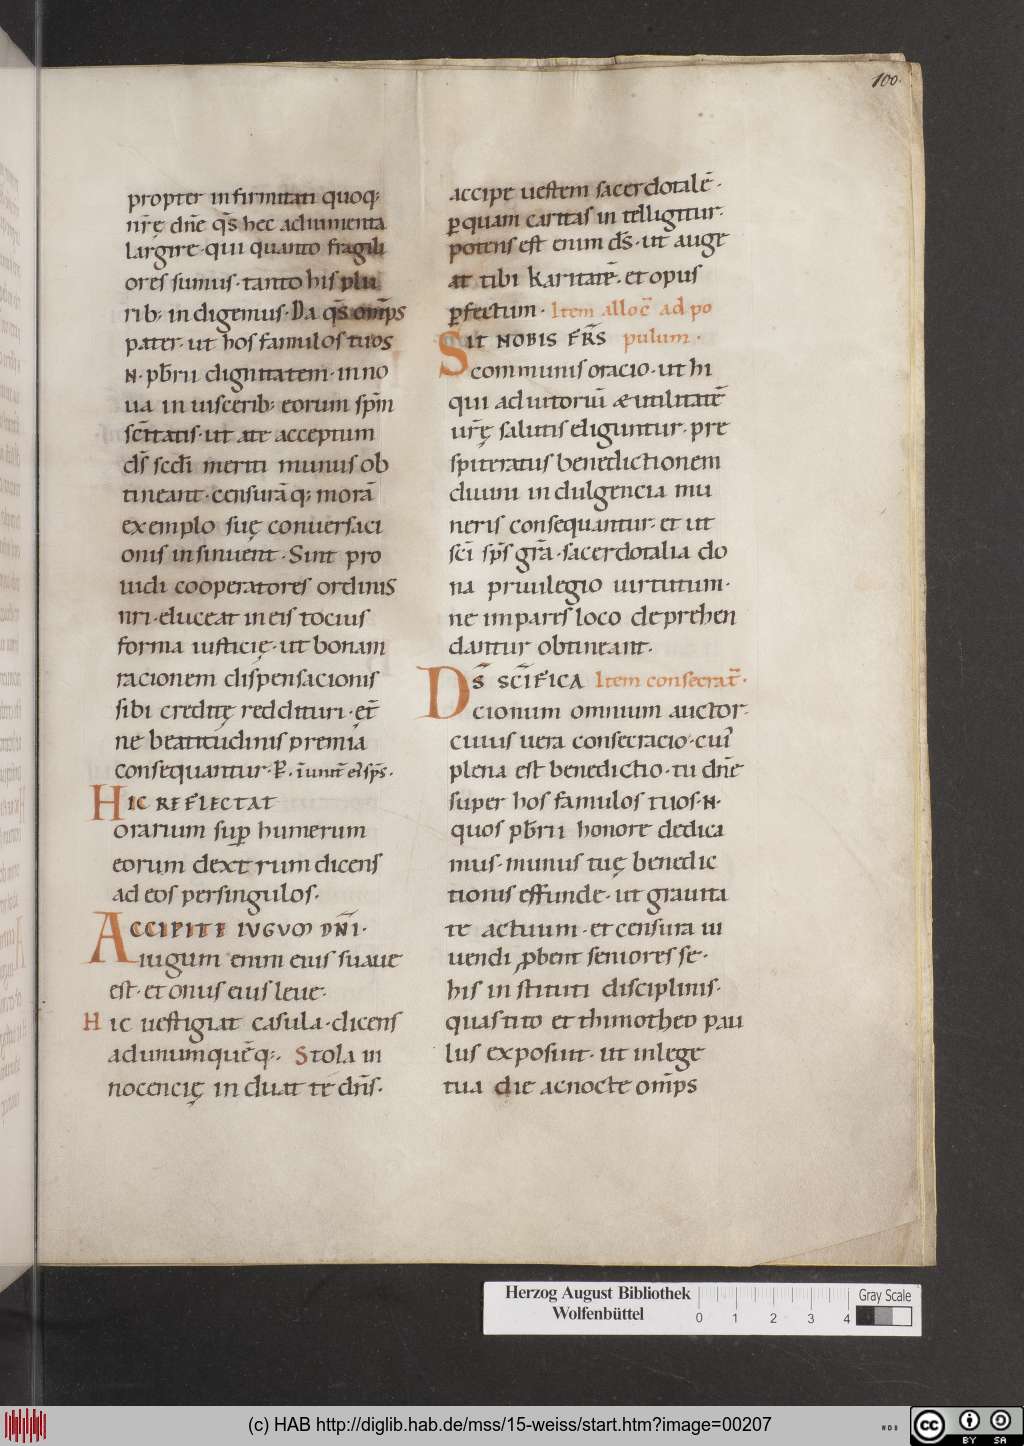 100.
propter infirmitati quoq;
nr̄ę dn̄e q̄s hec adiumenta
largire· qui quanto fragili
ores sumus· tanto his plu
rib; indigemus· Da q̄s om̄ps
pater· ut hos famulos tuos
·N· pb̄rii dignitatem· inno
ua in uiscerib; eorum sp̄m
sc̄itatis· ut a te acceptum
ds̄ scdi meriti munus ob
tineant· censurāq; morā
exemplo suę conuersaci
onis insinuent· Sint pro
uidi cooperatores ordinis
nri· eluceat in eis tocius
forma iusticię· ut bonam
racionem dispensacionis
sibi creditę reddituri· et̄
ne beatitudinis premia
consequantur·
HIC REFLECTAT
orarium sup̱ humerum
eorum dextrum dicens
ad eos per singulos·
ACCIPITE IUGUM DN̄I·
iugum enim eius suaue
est· et onus eius leue·
Hic uestigiat casula· dicens
ad unumquēq;· Stola in
nocencię induat te dn̄s·
accipe uestem sacerdotalē·
ꝑquam caritas intelligitur·
potens est enim ds̄· ut auge
at tibi karitatē· et opus
ꝑfectum· Item alloc̄ ad po
SIT NOBIS FR̄S pulum·
communis oracio· ut hi
qui adiutoriū & utilitatē
ur̄ę salutis eliguntur· pre
spiteratus benedictionem
diuini indulgencia mu
neris consequantur· et ut
sc̄i sp̄s gr̄a· sacerdotalia do
na priuilegio uirtutum·
ne impares loco deprehen
dantur obtineant·
DS̄ SC̄IFICA Item consecrat̄·
cionum omnium auctor·
cuius uera consecracio· cui
plena est benedictio· tu dn̄e
super hos famulos tuos ·N·
quos pb̄rii honore dedica
mus· munus tuę benedic
tionis effunde· ut grauita
te actuum· et censura ui
uendi ꝓbent seniores se·
his instituti disciplinis·
quas tito et thimotheo pau
lus exposuit· ut in lege
tua die ac nocte om̄ps
Herzog August Bibliothek
Wolfenbüttel
0 1 2 3 4
Gray Scale
(c) HAB http://diglib.hab.de/mss/15-weiss/start.htm?image=00207
cc BY SA